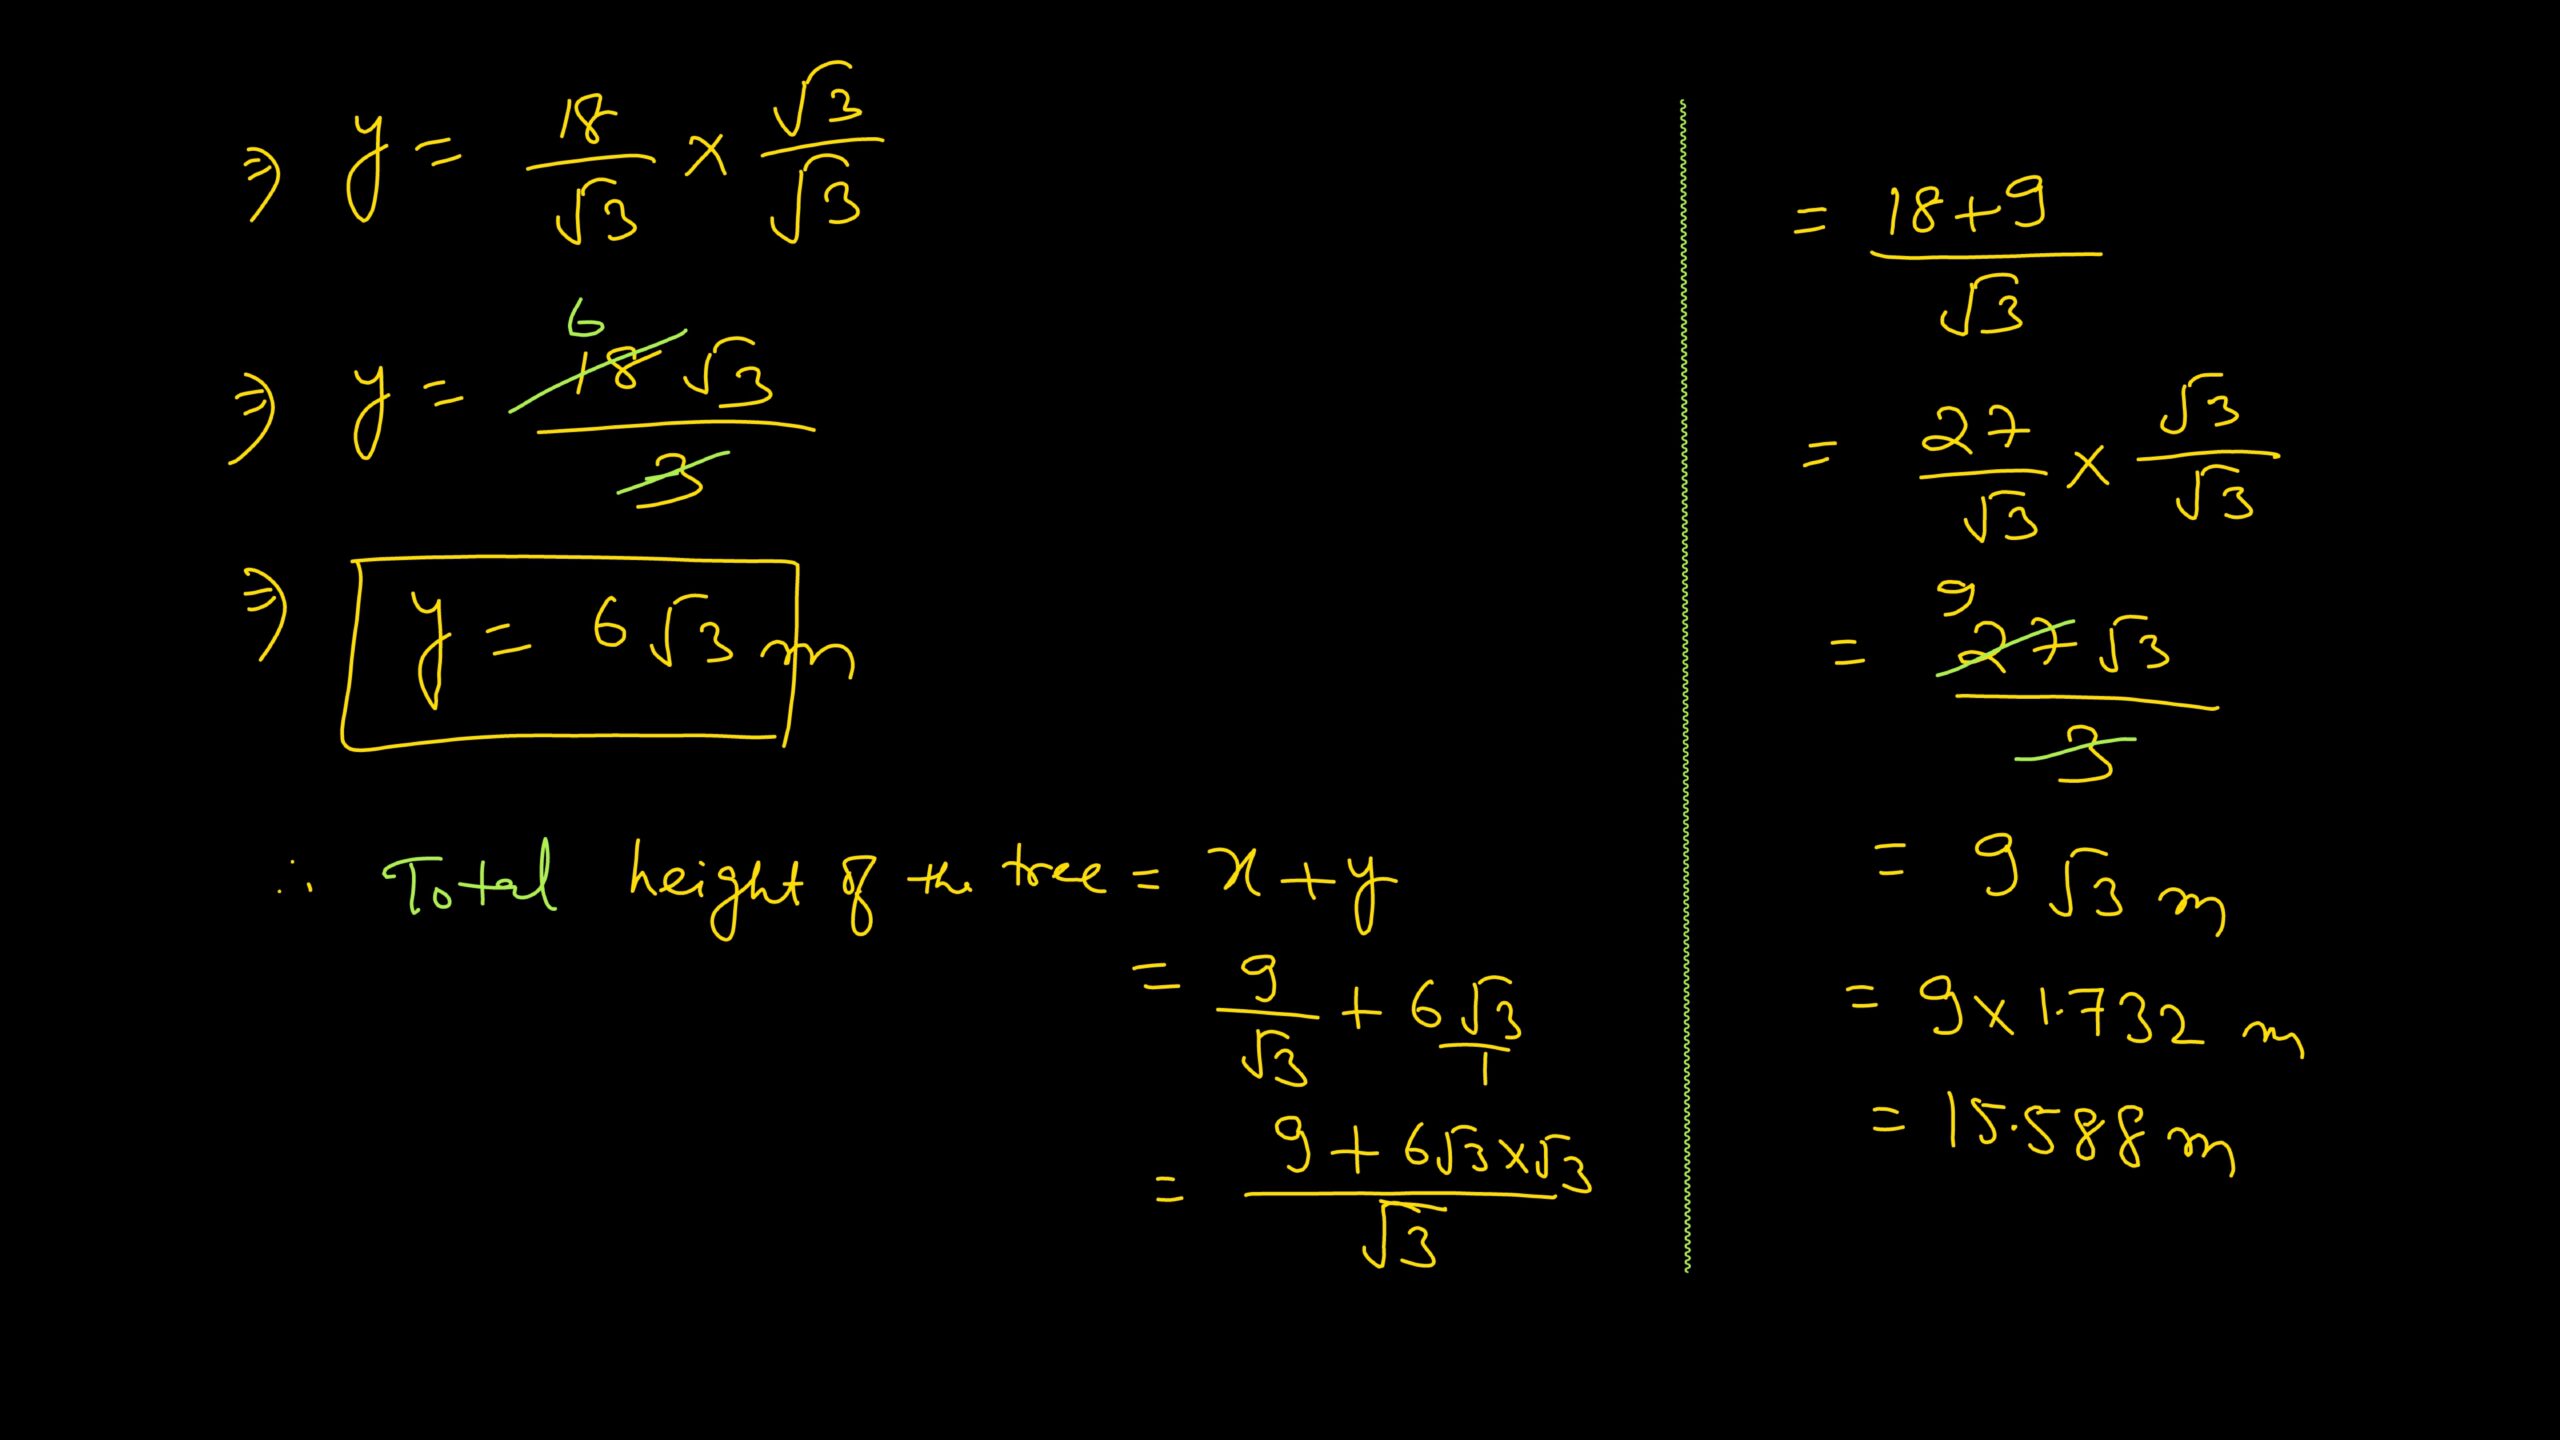 ⇒ y = 18/√3 × √3/√3
⇒ y = 6 18√3/3
⇒ y = 6√3 m
∴ Total height of the tree = x + y
= 9/√3 + 6√3/1
= (9 + 6√3×√3)/√3
= (18+9)/√3
= 27/√3 × √3/√3
= 9 27√3/3
= 9√3 m
= 9×1.732 m
= 15.588 m